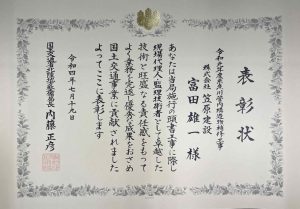 表彰状
株式会社 笠原建設
富田雄一様
あなたは当局施行の頭書工事に際し
現場代理人・監理技術者として卓越した
技術と旺盛なる責任感をもって
よく業務を完遂し優秀な成果をおさめ
国土交通事業に貢献されました
よってここに表彰します
令和四年七月十九日
国土交通省北陸地方整備局長 内藤正彦